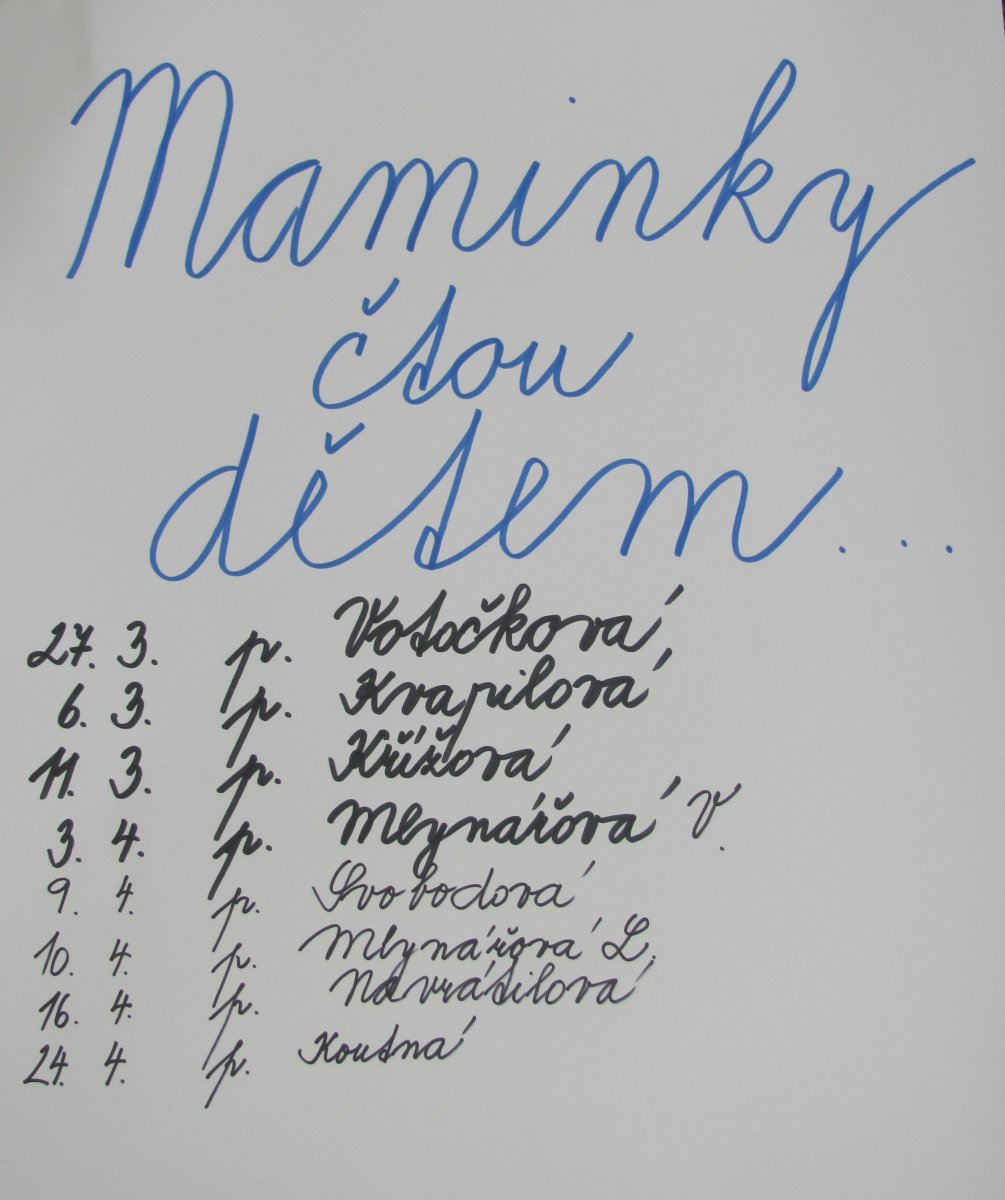 Maminky
čtou
dětem...
27. 3. p. Votočková
6. 3. p. Kvapilová
11. 3. p. Křížová
3. 4. p. Mlynářová V.
9. 4. p. Svobodová
10. 4. p. Mlynářová L.
16. 4. p. Navrátilová
24. 4. p. Koutná